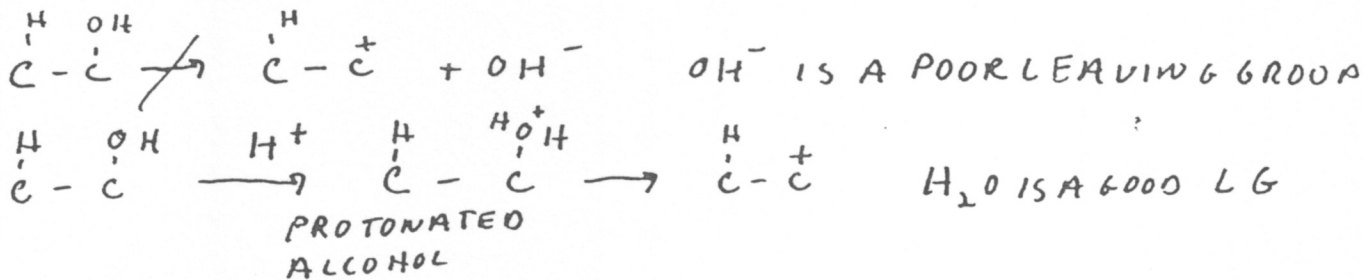 H OH H
C - C ↛ C - C⁺ + OH⁻ OH⁻ IS A POOR LEAVING GROUP
H OH H⁺ H HO⁺H H
C - C ⟶ C - C ⟶ C - C⁺ H₂O IS A GOOD LG
PROTONATED
ALCOHOL